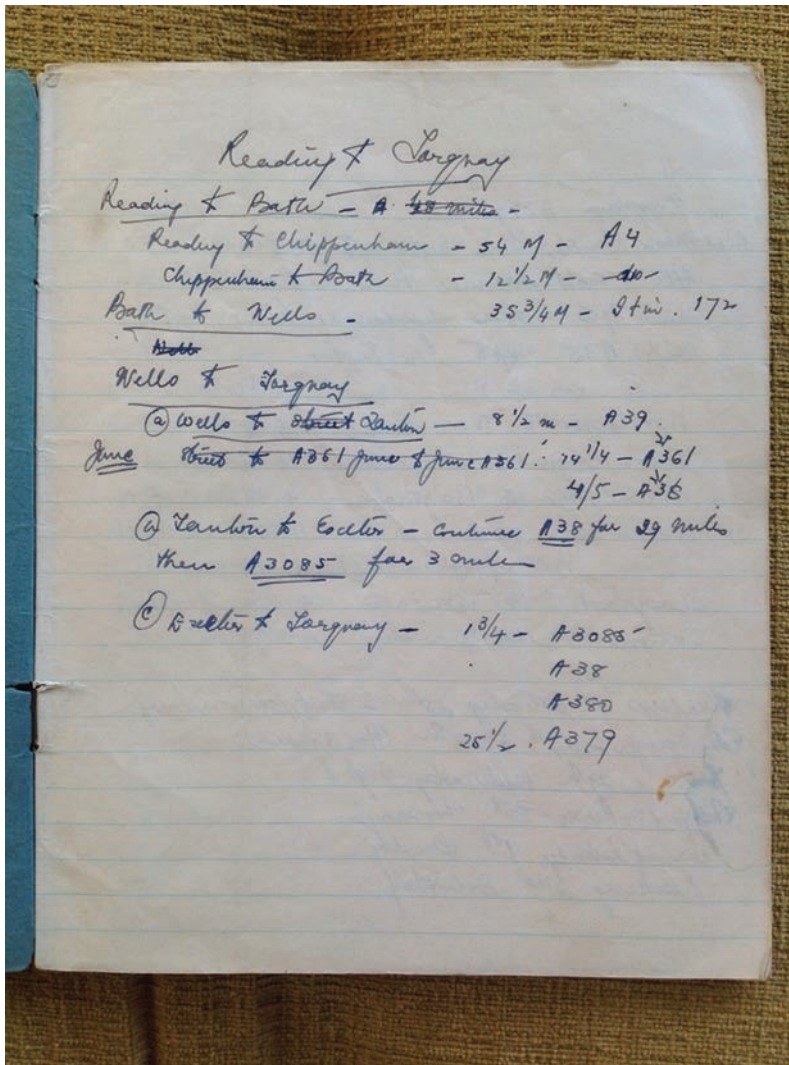 Reading to Torquay
Reading to Bath - A 48 miles -
Reading to Chippenham - 54 M - A4
Chippenham to Bath - 12 1/2 M - do-
Bath to Wells - 35 3/4 M - 172
Wells
Wells to Torquay
(a) Wells to Street Taunton — 8 1/2 m - A39.
June Street to A361 June to June A361: 14 1/4 - A361
4/5 - A38
Taunton to Exeter - continue A38 for 29 miles
then A3085 for 3 miles
(c) Exeter to Torquay - 1 3/4 - A3085
A38
A380
25 1/2. A379